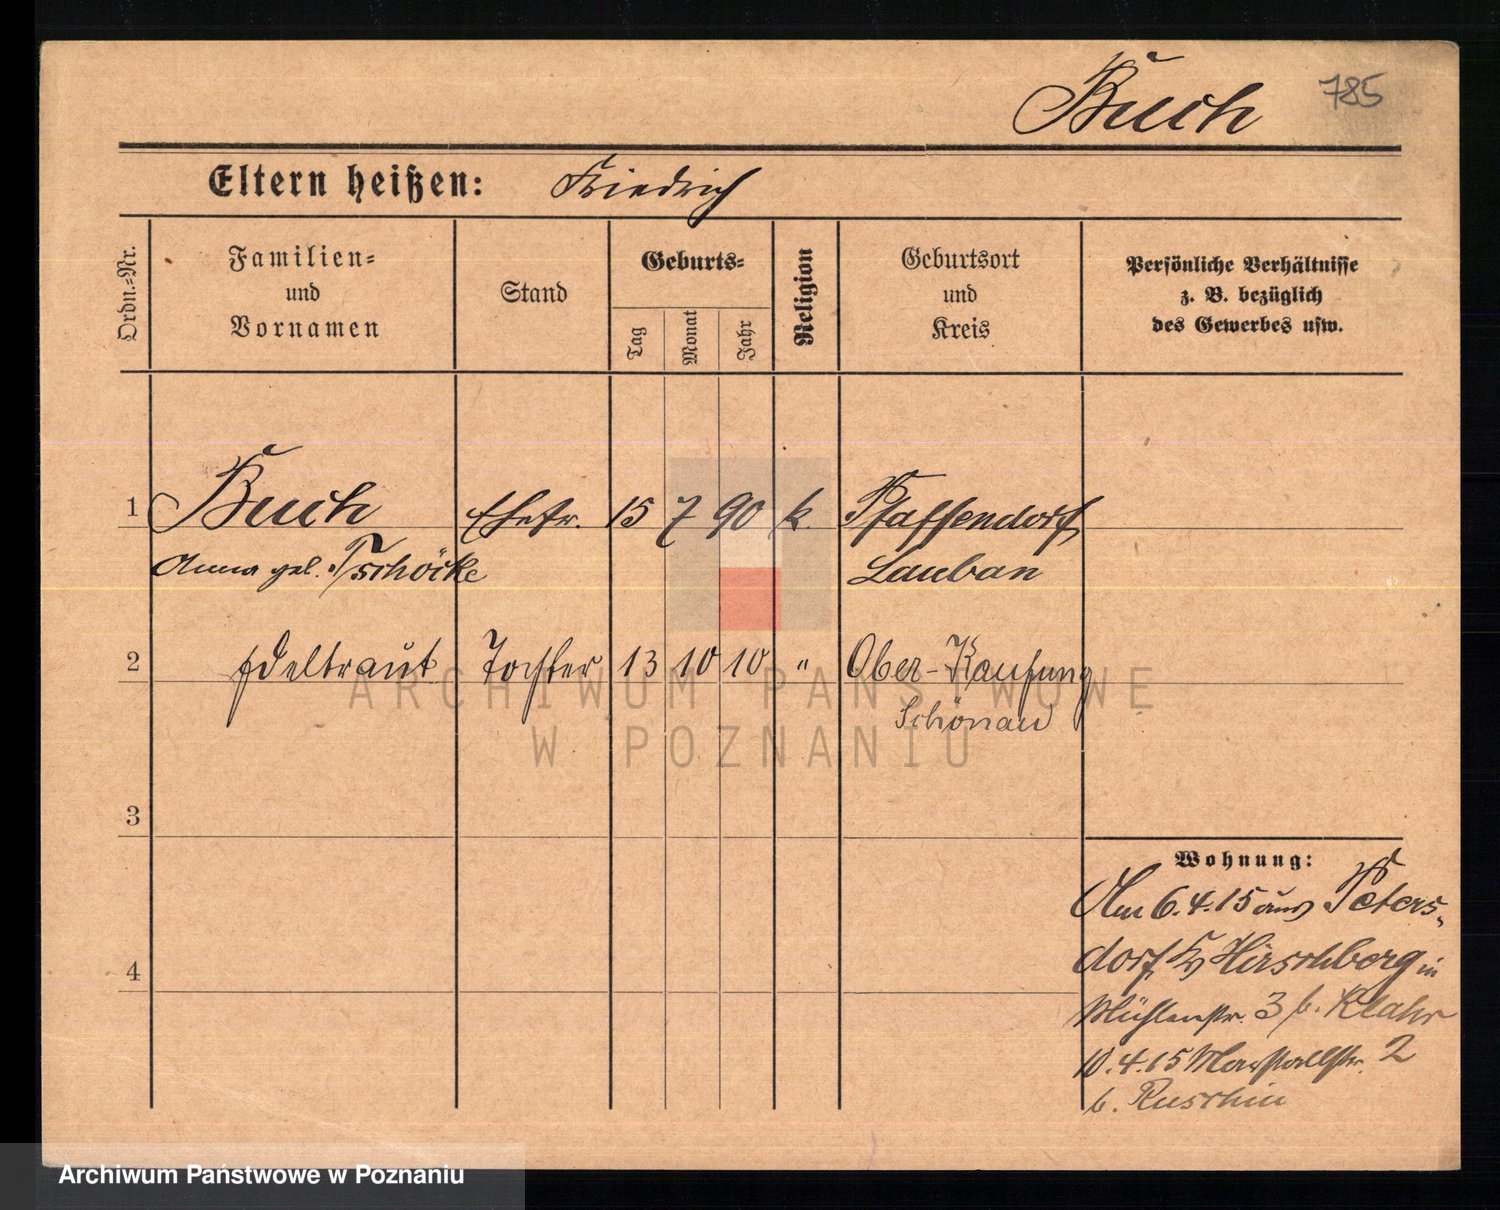 Buch 785
Eltern heißen: Friedrich
Ordn.-Nr.
Familien-
und
Vornamen
Stand
Geburts-
Tag
Monat
Jahr
Religion
Geburtsort
und
Kreis
Persönliche Verhältnisse
z. B. bezüglich
des Gewerbes usw.
1 Buch Ehefr. 15 7 90 k. Pfaffendorf
Anna geb. Tschöcke Lauban
2 Edeltraut Tochter 13 10 10 " Ober-Kaufung
Schönau
3
4
Wohnung:
Am 6.4.15 aus Peters-
dorf Kr Hirschberg in
Mühlenstr. 3 b. Klahr
10.4.15 Marstallstr. 2
b. Ruschin
ARCHIWUM PAŃSTWOWE
W POZNANIU
Archiwum Państwowe w Poznaniu